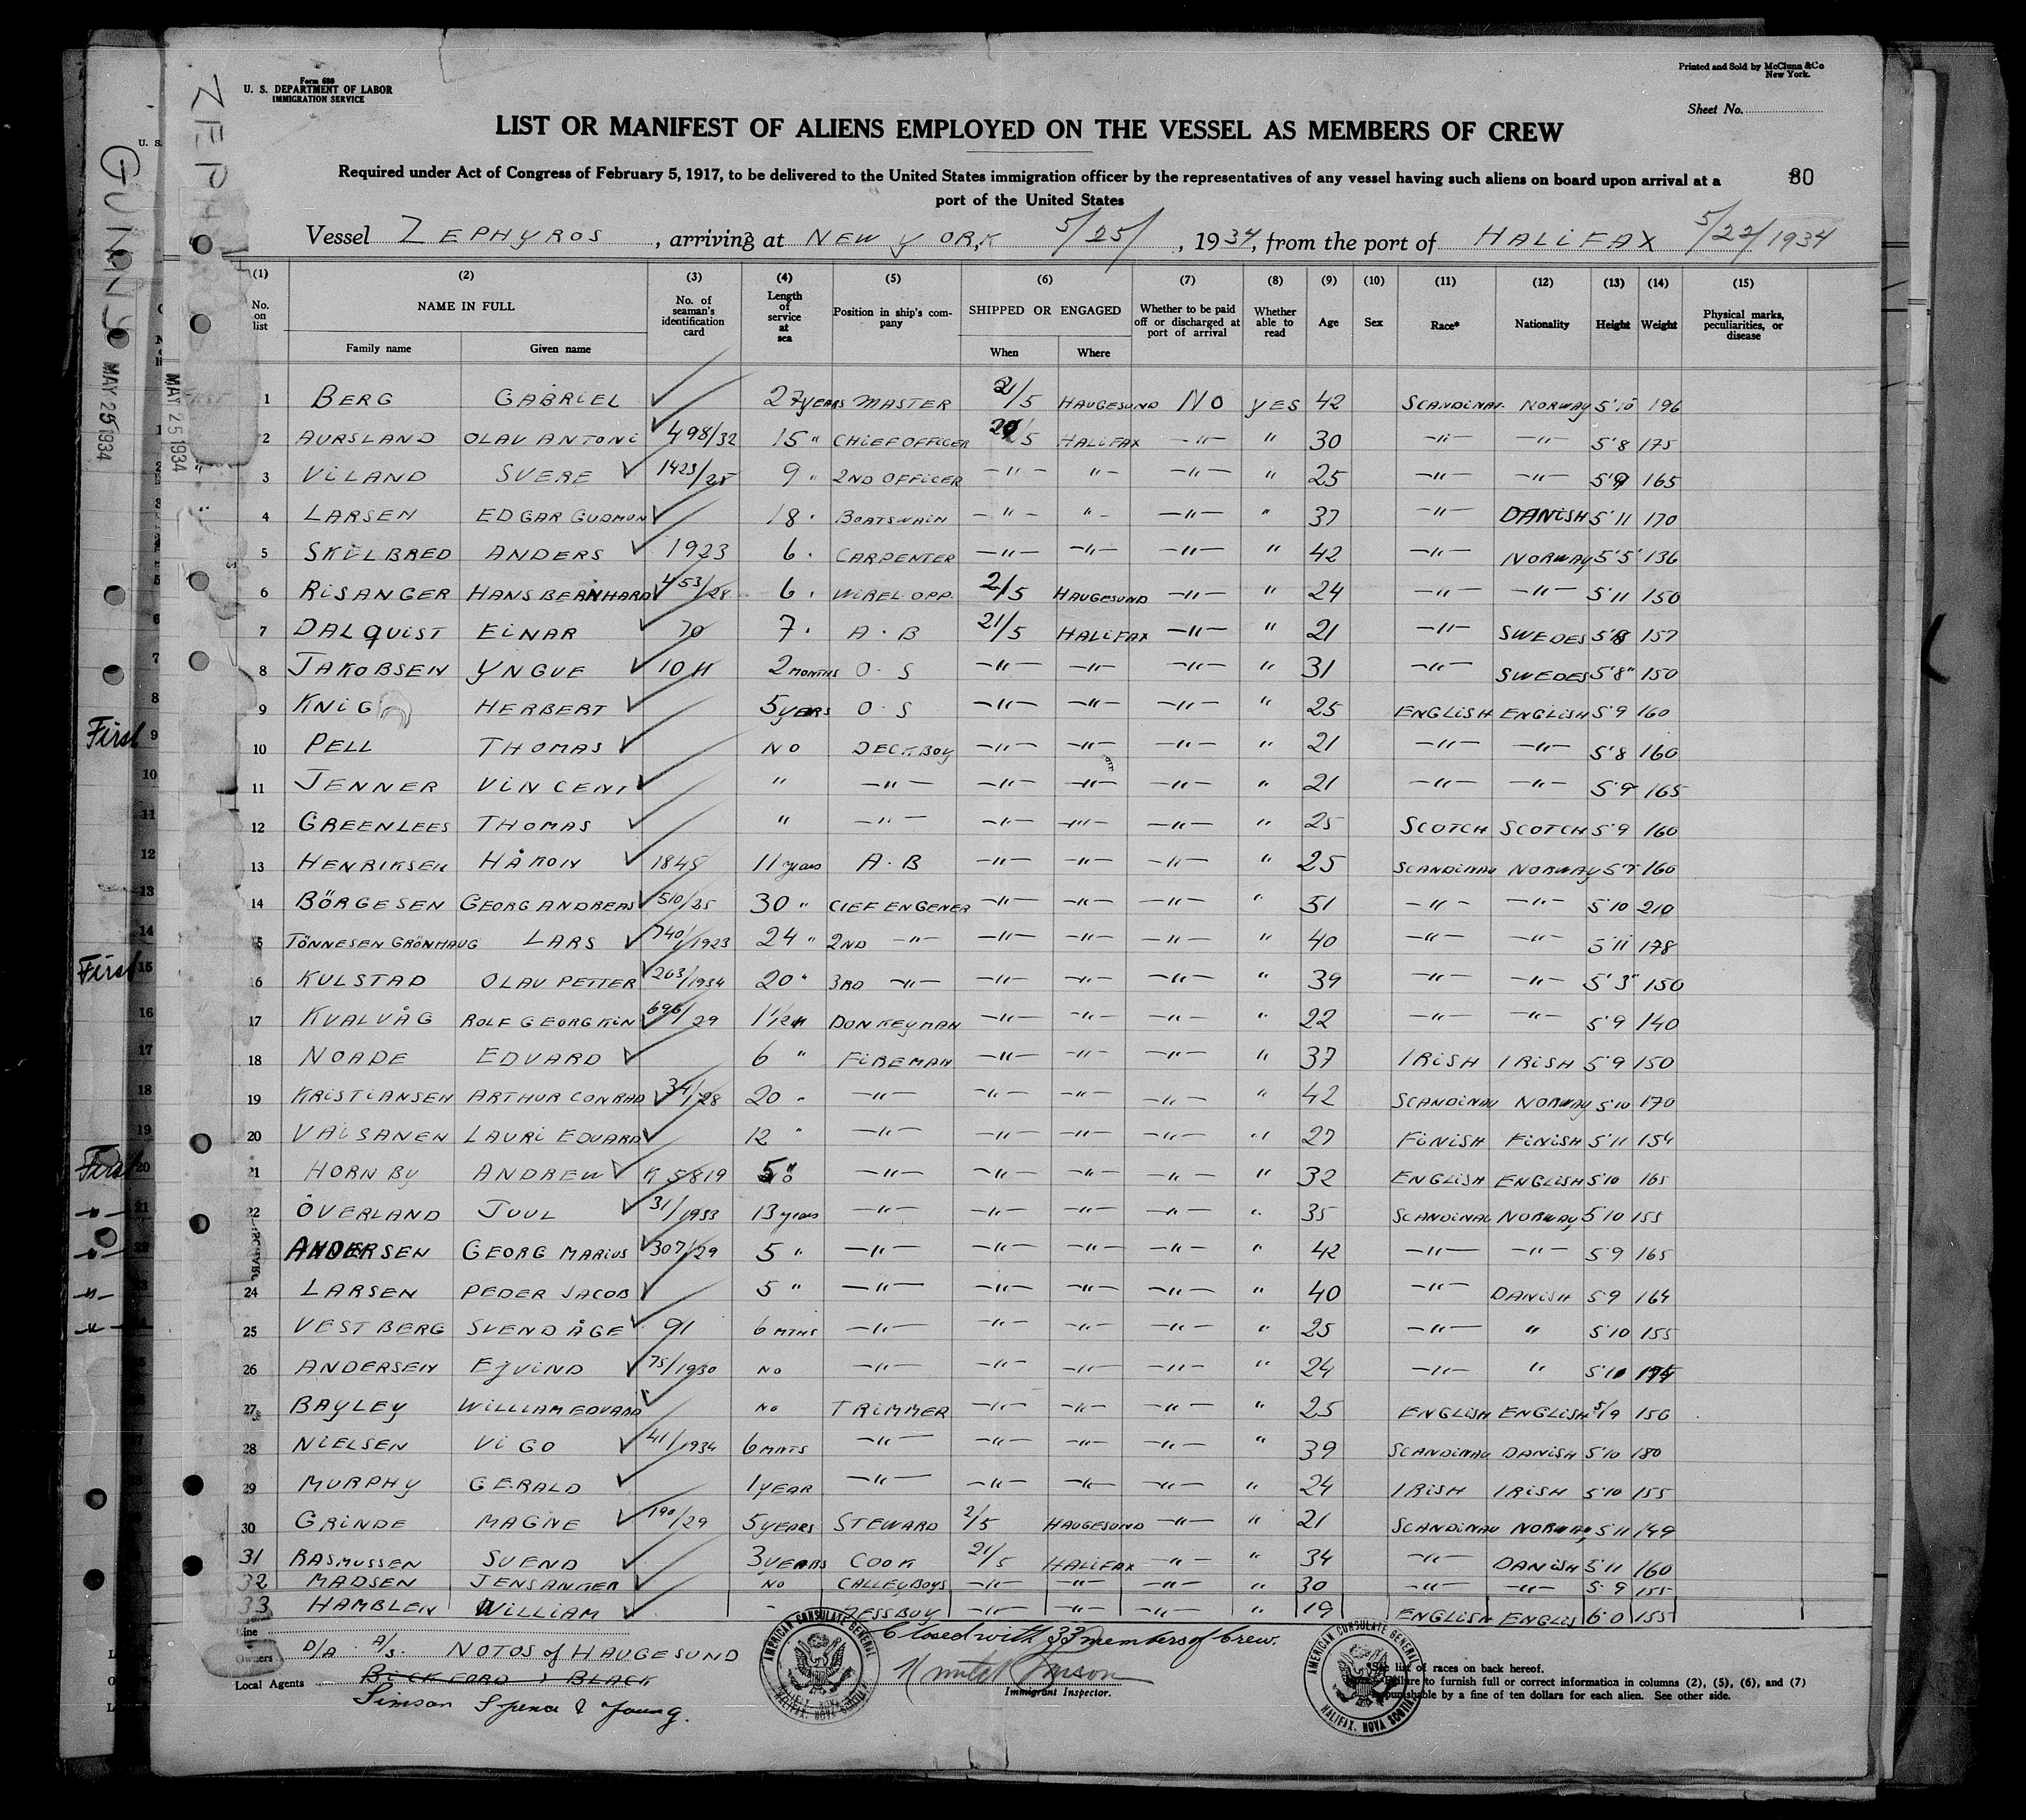 Form 680
U. S. DEPARTMENT OF LABOR
IMMIGRATION SERVICE
Printed and Sold by McClunn & Co
New York.
Sheet No.
LIST OR MANIFEST OF ALIENS EMPLOYED ON THE VESSEL AS MEMBERS OF CREW
Required under Act of Congress of February 5, 1917, to be delivered to the United States immigration officer by the representatives of any vessel having such aliens on board upon arrival at a
port of the United States
80
Vessel ZEPHYROS, arriving at NEW YORK 5/25/, 1934, from the port of HALIFAX 5/22/1934
(1) (2) (3) (4) (5) (6) (7) (8) (9) (10) (11) (12) (13) (14) (15)
No. on list NAME IN FULL Family name Given name No. of seaman's identification card Length of service at sea Position in ship's company SHIPPED OR ENGAGED When Where Whether to be paid off or discharged at port of arrival Whether able to read Age Sex Race* Nationality Height Weight Physical marks, peculiarities, or disease
1 BERG GABRIEL 27 YEARS MASTER 2/5 HAUGESUND NO YES 42 SCANDINAV. NORWAY 5'10 196
2 AURSLAND OLAV ANTONI 498/32 15 " CHIEF OFFICER /5 HALIFAX -"- " 30 -"- -"- 5'8 175
3 VILAND SVERE 1423/25 9 " 2ND OFFICER -"- "- -"- " 25 -"- -"- 5'9 165
4 LARSEN EDGAR GUDMUN 18 " BOATSWAIN -"- "- -"- " 37 -"- DANISH 5'11 170
5 SKULBRED ANDERS 1923 6 " CARPENTER -"- -"- -"- " 42 -"- NORWAY 5'5" 136
6 RISANGER HANS BERNHARD 453/28 6 " WIREL OPP. 2/5 HAUGESUND -"- " 24 -"- -"- 5'11 150
7 DALQUIST EINAR 70 7 " A.B 21/5 HALIFAX -"- " 21 -"- SWEDES 5'8 157
8 JAKOBSEN YNGVE 2 MONTHS O.S -"- -"- -"- " 31 -"- SWEDES 5'8" 150
9 KNIG HERBERT 5 YEARS O.S -"- -"- -"- " 25 ENGLISH ENGLISH 5'9 160
10 PELL THOMAS NO DECKBOY -"- -"- -"- " 21 -"- -"- 5'8 160
11 JENNER VINCENT " -"- -"- -"- -"- " 21 -"- -"- 5'9 165
12 GREENLEES THOMAS " -"- -"- -"- -"- " 25 SCOTCH SCOTCH 5'9 160
13 HENRIKSEN HÅKON 1845 11 years A.B -"- -"- -"- " 25 SCANDINAV NORWAY 5'7 160
14 BÖRGESEN GEORG ANDREAS 510/25 30 " CIEF ENGENER -"- -"- -"- " 51 -"- -"- 5'10 210
15 TÖNNESEN GRÖNHAUG LARS 740/1923 24 " 2ND -"- -"- -"- -"- " 40 -"- -"- 5'11 178
16 KULSTAD OLAV PETTER 263/1934 20 " 3RD -"- -"- -"- -"- " 39 -"- -"- 5'3" 150
17 KVALVÅG ROLF GEORG KIN 696/29 1½ " DONKEYMAN -"- -"- -"- " 22 -"- -"- 5'9 140
18 NOADE EDVARD 6 " FIREMAN -"- -"- -"- " 37 IRISH IRISH 5'9 150
19 KRISTIANSEN ARTHUR CONRAD 34/28 20 " -"- -"- -"- -"- " 42 SCANDINAV NORWAY 5'10 170
20 VAISANEN LAURI EDVARD 12 " -"- -"- -"- -"- " 27 FINISH FINISH 5'11 154
21 HORNBY ANDREW K 5819 5 " -"- -"- -"- -"- " 32 ENGLISH ENGLISH 5'10 165
22 ÖVERLAND JUUL 31/1933 13 years -"- -"- -"- -"- " 35 SCANDINAV NORWAY 5'10 155
ANDERSEN GEORG MARIUS 307/29 5 " -"- -"- -"- -"- " 42 -"- -"- 5'9 165
24 LARSEN PEDER JACOB 5 " -"- -"- -"- -"- " 40 -"- DANISH 5'9 164
25 VESTBERG SVEND ÅGE 91 6 MTHS -"- -"- -"- -"- " 25 -"- " 5'10 155
26 ANDERSEN EJVIND 75/1930 NO -"- -"- -"- -"- " 24 -"- " 5'10
27 BAYLEY WILLIAM EDVARD NO TRIMMER -"- -"- -"- " 25 ENGLISH ENGLISH 5/9 150
28 NIELSEN VIGO 41/1934 6 MNTS -"- -"- -"- -"- " 39 SCANDINAV DANISH 5'10 180
29 MURPHY GERALD 1 YEAR -"- -"- -"- -"- " 24 IRISH IRISH 5'10 155
30 GRINDE MAGNE 190/29 5 YEARS STEWARD 2/5 HAUGESUND -"- " 21 SCANDINAV NORWAY 5'11 149
31 RASMUSSEN SVEND 3 YEARS COOK 21/5 HALIFAX -"- " 34 -"- DANISH 5'11 160
32 MADSEN JENS ANKER NO CALLEYBOYS -"- -"- -"- " 30 -"- -"- 5'9 155
33 HAMBLEN WILLIAM - MESSBOY -"- -"- -"- " 19 ENGLISH ENGLIS 6'0 155
Line
Closed with 33 members of Crew.
Owners D/A A/S. NOTOS of HAUGESUND
Local Agents BICKFORD & BLACK
Simson Spence & Young.
Immigrant Inspector.
AMERICAN CONSULATE GENERAL
HALIFAX, NOVA SCOTIA
AMERICAN CONSULATE GENERAL
HALIFAX, NOVA SCOTIA
See list of races on back hereof.
Failure to furnish full or correct information in columns (2), (5), (6), and (7)
is punishable by a fine of ten dollars for each alien. See other side.
ZEPHYROS
MAY 25 1934
GUNNY
MAY 25 1934
First
First
First